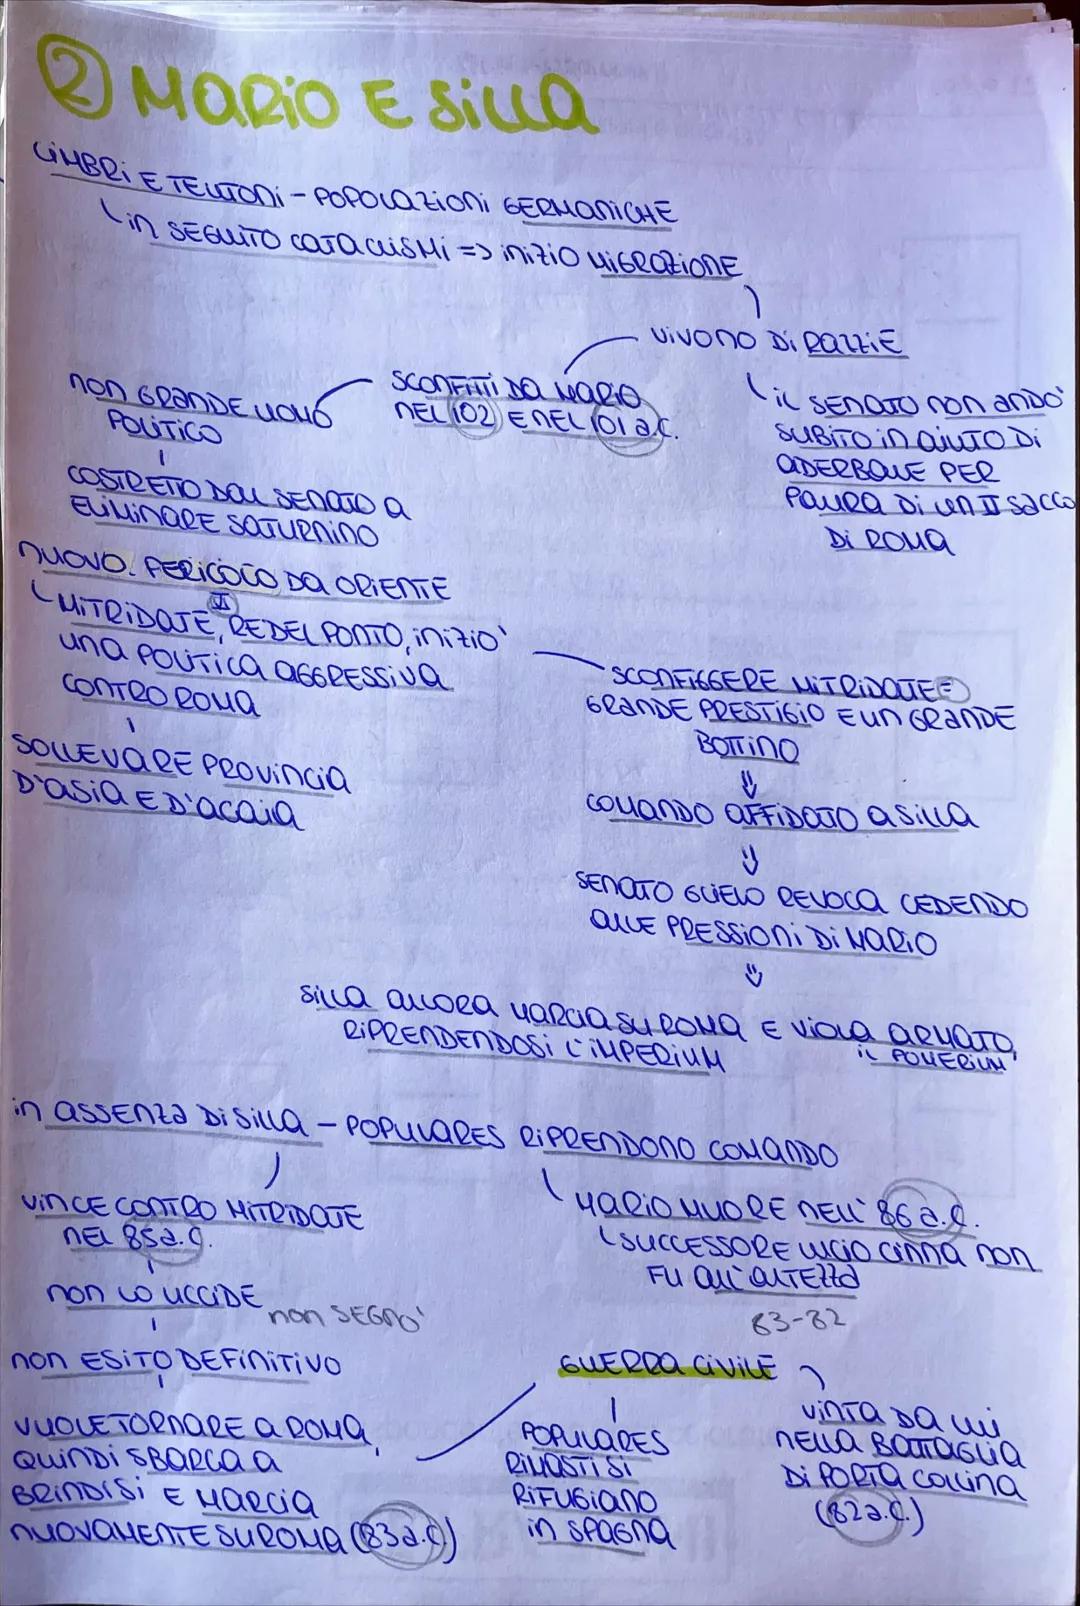 ② MARIO E SILLA
CIMBRI E TEUTONI - POPOLAZIONI GERMANICHE
IN SEGUITO CATACLISMI => INIZIO MIGRAZIONE
VIVONO DI RAZZIE
IL SENATO NON ANDÒ
SUBITO IN AIUTO DI
ADERBALE PER
PAURA DI UN II SACCO
DI ROMA
SCONFITTI DA MARIO
NEL 102 E NEL 101 a.C.
NON GRANDE UOMO
POLITICO
COSTRETTO DAL SENATO A
ELIMINARE SATURNINO
NUOVO PERICOLO DA ORIENTE
MITRIDATE VI, RE DEL PONTO, INIZIÒ
UNA POLITICA AGGRESSIVA
CONTRO ROMA
SOLLEVARE PROVINCIA
D'ASIA E D'ACAIA
SCONFIGGERE MITRIDATE =
GRANDE PRESTIGIO E UN GRANDE
BOTTINO
⇓
COMANDO AFFIDATO A SILLA
⇓
SENATO GLIELO REVOCA CEDENDO
ALLE PRESSIONI DI MARIO
⇓
SILLA ALLORA MARCIA SU ROMA E VIOLA ARMATO,
IL POMERIUM
RIPRENDENDOSI L'IMPERIUM
IN ASSENZA DI SILLA - POPULARES RIPRENDONO COMANDO
VINCE CONTRO MITRIDATE
NEL 85 a.C.
NON LO UCCIDE
NON SEGNÒ
NON ESITO DEFINITIVO
VUOLE TORNARE A ROMA,
QUINDI SBARCA A
BRINDISI E MARCIA
NUOVAMENTE SU ROMA (83 a.C.)
MARIO MUORE NELL'86 a.C.
SUCCESSORE LUCIO CINNA NON
FU ALL'ALTEZZA
83-82
GUERRA CIVILE
POPULARES
RIMASTI SI
RIFUGIANO
IN SPAGNA
VINTA DA LUI
NELLA BATTAGLIA
DI PORTA COLLINA
(82 a.C.)